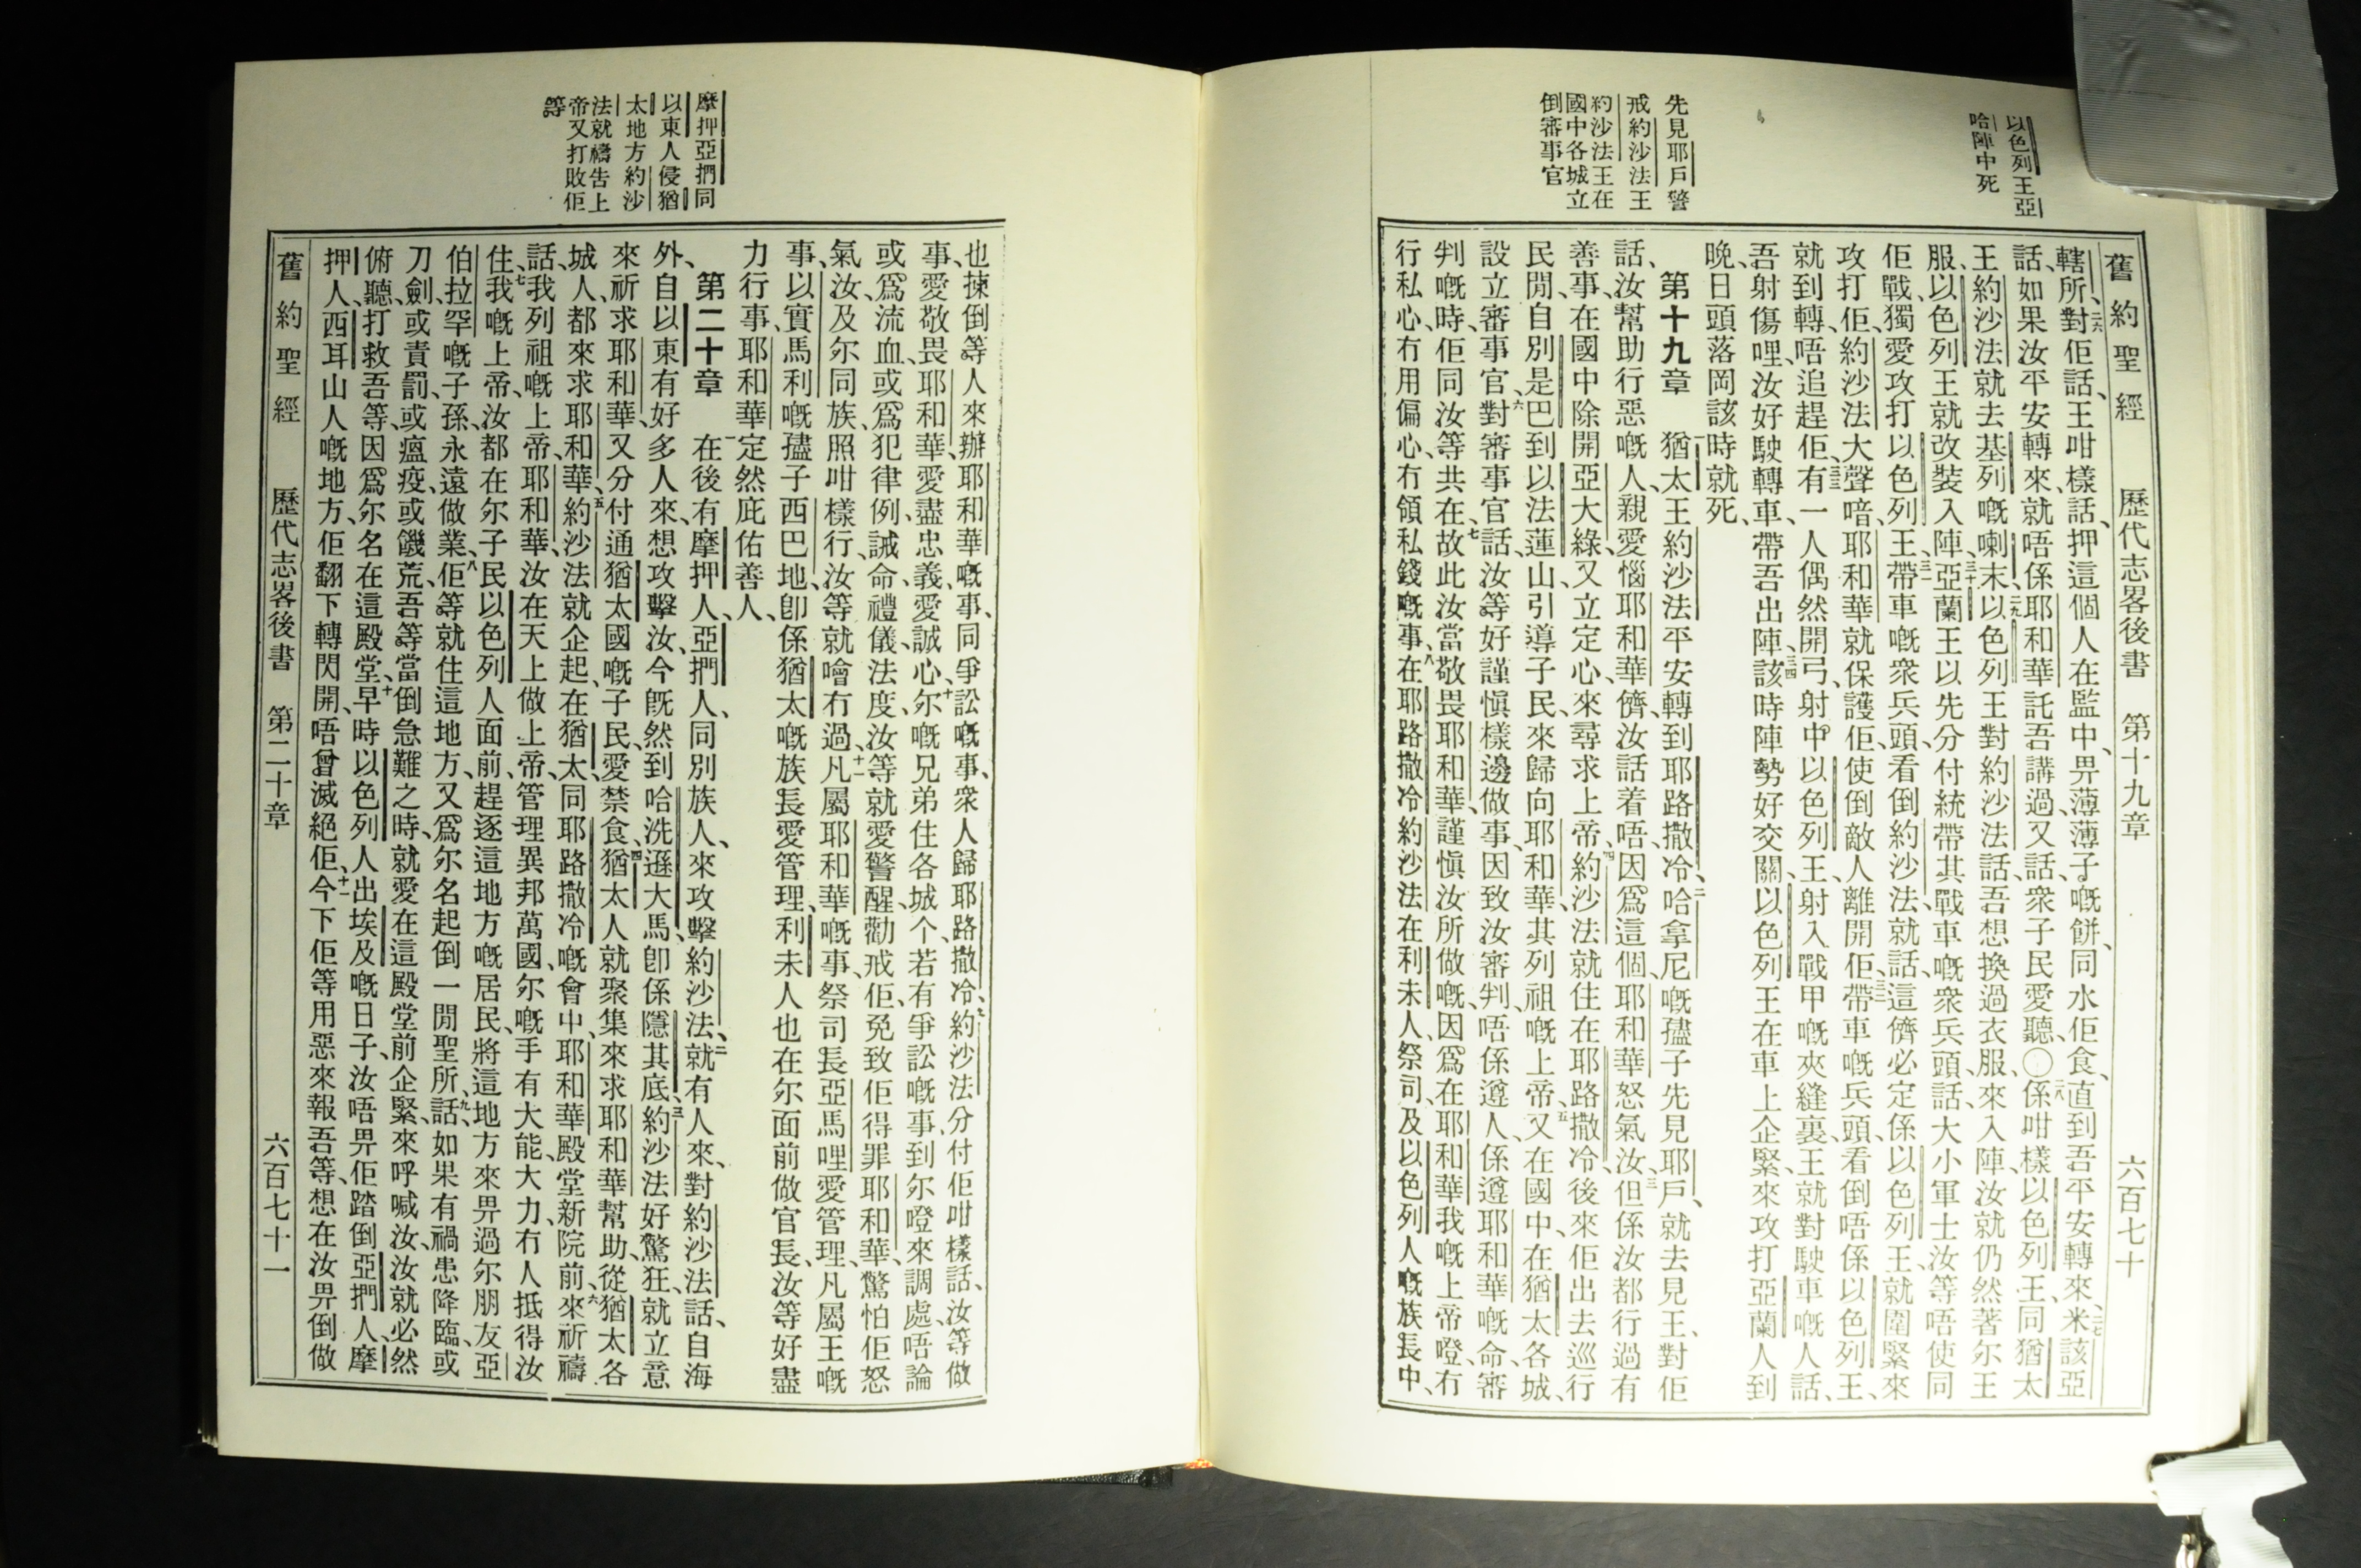 以色列王亞
哈陣中死
先見耶戶警
戒約沙法王
約沙法王在
國中各城立
倒審事官
舊約聖經　歷代志畧後書　第十九章　六百七十
轄所、二六對佢話、王咁樣話、押這個人在監中、畀薄薄子嘅餅、同水佢食、直到吾平安轉來、二七米該亞
話、如果汝平安轉來、就唔係耶和華託吾講過、又話、衆子民愛聽、〇二八係咁樣以色列王、同猶太
王約沙法就去基列嘅喇末、二九以色列王對約沙法話、吾想換過衣服、來入陣、汝就仍然著尔王
服、以色列王就改裝入陣、三十亞蘭王以先分付統帶其戰車嘅衆兵頭、話、大小軍士汝等唔使同
佢戰、獨愛攻打以色列王、三一帶車嘅衆兵頭、看倒約沙法、就話、這儕必定係以色列王、就圍緊來
攻打佢、約沙法大聲喑、耶和華就保護佢、使倒敵人離開佢、三二帶車嘅兵頭、看倒唔係以色列王、
就到轉、唔追趕佢、三三有一人偶然開弓、射中以色列王、射入戰甲嘅夾縫裏、王就對駛車嘅人話、
吾射傷哩、汝好駛轉車、帶吾出陣、三四該時陣勢好交關、以色列王在車上企緊、來攻打亞蘭人到
晚、日頭落岡該時就死、
第十九章　一猶太王約沙法平安轉到耶路撒冷、二哈拿尼嘅孻子先見耶戶、就去見王、對佢
話、汝幫助行惡嘅人、親愛惱耶和華儕、汝話着唔、因爲這個、耶和華怒氣汝、三但係汝都行過有
善事、在國中除開亞大綠、又立定心、來尋求上帝、四約沙法就住在耶路撒冷、後來佢出去巡行
民閒、自別是巴到以法蓮山、引導子民、來歸向耶和華、其列祖嘅上帝、五又在國中、在猶太各城、
設立審事官、六對審事官話、汝等好謹愼樣邊做事、因致汝審判、唔係遵人、係遵耶和華嘅命、審
判嘅時、佢同汝等共在、七故此汝當敬畏耶和華、謹愼汝所做嘅、因爲在耶和華我嘅上帝噔、冇
行私心、冇用偏心、冇領私錢嘅事、八在耶路撒冷約沙法在利未人、祭司、及以色列人嘅族長中、
摩押亞捫同
以東人侵猶
太地方約沙
法就禱告上
帝又打敗佢
等
也揀倒等人來辦耶和華嘅事、同爭訟嘅事、衆人歸耶路撒冷、九約沙法分付佢咁樣話、汝等做
事、愛敬畏耶和華、愛盡忠義、愛誠心、十尔嘅兄弟住各城个、若有爭訟嘅事、到尔噔來調處、唔論
或爲流血、或爲犯律例、誡命、禮儀、法度、汝等就愛警醒、勸戒佢、免致佢得罪耶和華、驚怕佢怒
氣汝、及尔同族、照咁樣行、汝等就噲冇過、十一凡屬耶和華嘅事、祭司長亞馬哩愛管理、凡屬王嘅
事、以實馬利嘅孻子西巴地、卽係猶太嘅族長愛管理、利未人也在尔面前做官長、汝等好盡
力行事、耶和華定然庇佑善人、
第二十章　一在後有摩押人、亞捫人、同別族人、來攻擊約沙法、二就有人來、對約沙法話、自海
外、自以東有好多人來、想攻擊汝、今旣然到哈洗遜大馬、卽係隱其底、三約沙法好驚狂、就立意
來祈求耶和華、又分付通猶太國嘅子民、愛禁食、四猶太人就聚集來求耶和華幫助、從猶太各
城、人都來求耶和華、五約沙法就企起、在猶太、同耶路撒冷嘅會中、耶和華殿堂新院前、六來祈禱
話、我列祖嘅上帝、耶和華、汝在天上做上帝、管理異邦萬國、尔嘅手有大能、大力、冇人抵得汝
住、七我嘅上帝、汝都在尔子民以色列人面前、趕逐這地方嘅居民、將這地方來畀過尔朋友亞
伯拉罕嘅子孫、永遠做業、八佢等就住這地方、又爲尔名起倒一閒聖所、九話、如果有禍患降臨、或
刀劍、或責罰、或瘟疫、或饑荒、吾等當倒急難之時、就愛在這殿堂前企緊、來呼喊汝、汝就必然
俯聽、打救吾等、因爲尔名在這殿堂、十早時以色列人出埃及嘅日子、汝唔畀佢踏倒亞捫人、摩
押人、西耳山人嘅地方、佢翻下轉閃開、唔曾滅絕佢、十一今下佢等用惡來報吾等、想在汝畀倒做
舊約聖經　歷代志畧後書　第二十章　六百七十一